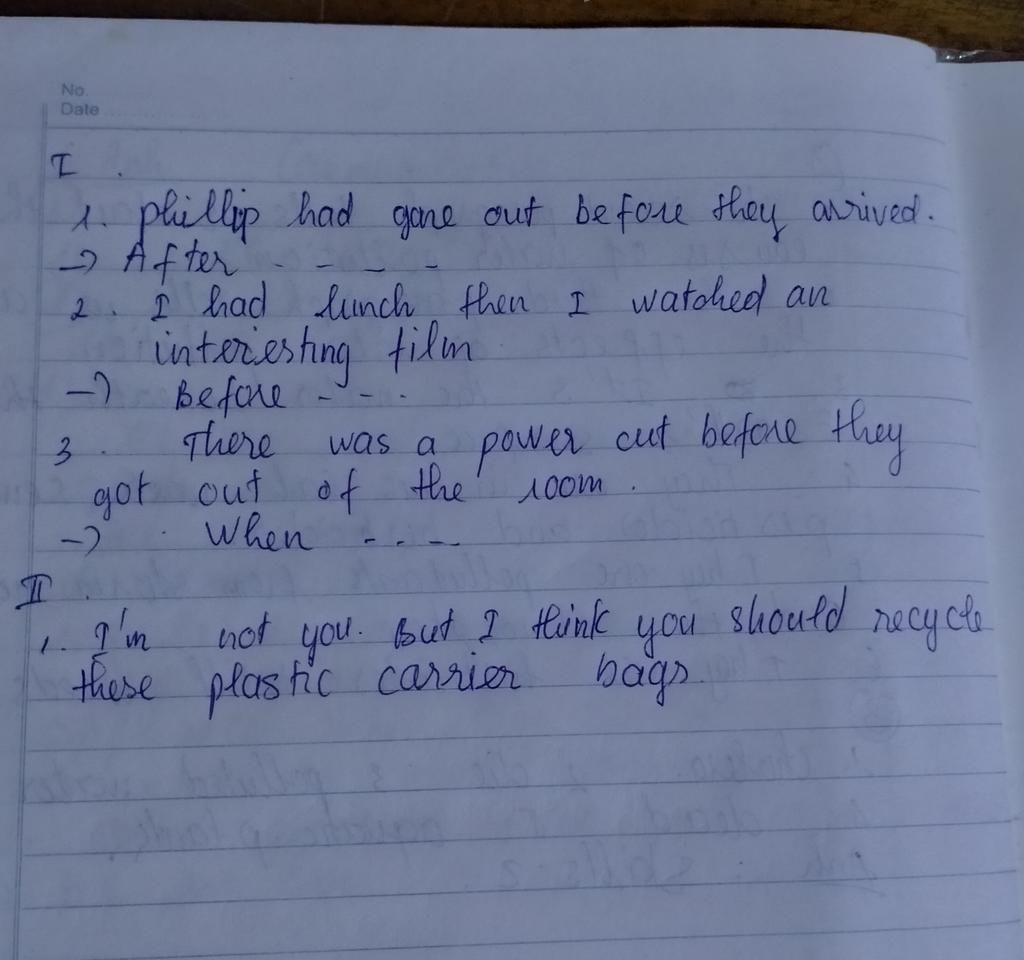 No.
Date
I.
1. phillip had gone out before they arrived.
-> After - - - -
2. I had lunch then I watched an
interesting film
-> Before - - -
3. There was a power cut before they
got out of the room.
-> . When - - - -
II.
1. I'm not you. But I think you should recycle
these plastic carrier bags.